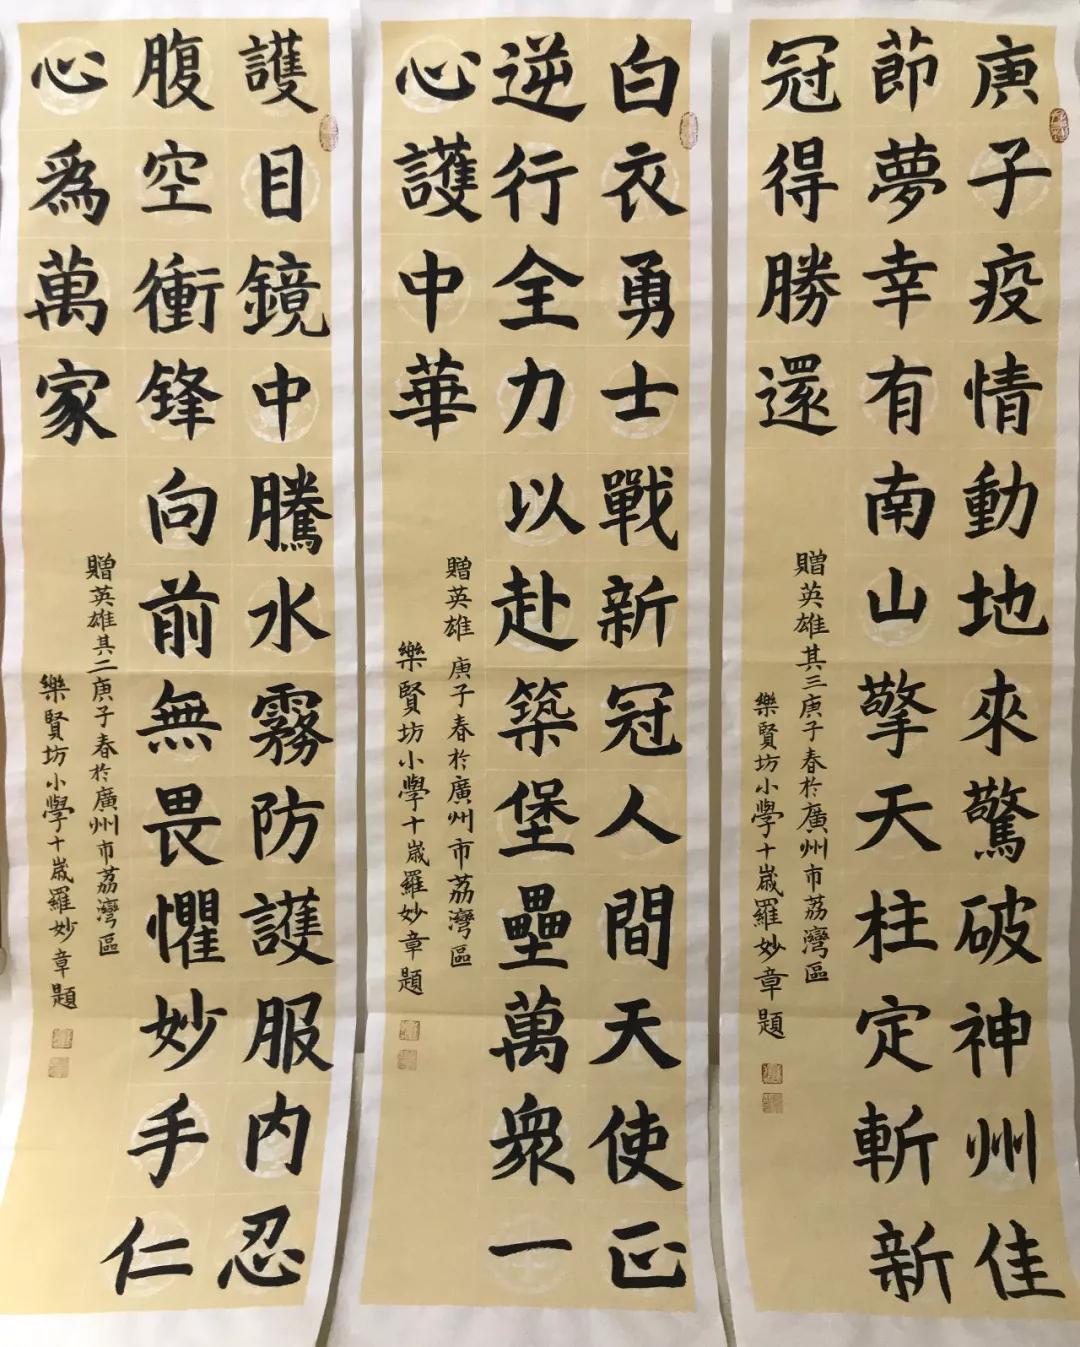 庚子疫情動地來驚破神州佳
節夢幸有南山擎天柱定斬新
冠得勝還
贈英雄其三庚子春於廣州市荔灣區
樂賢坊小學十歲羅妙章題
白衣勇士戰新冠人間天使正
逆行全力以赴築堡壘萬衆一
心護中華
贈英雄 庚子春於廣州市荔灣區
樂賢坊小學十歲羅妙章題
護目鏡中騰水霧防護服内忍
腹空衝鋒向前無畏懼妙手仁
心爲萬家
贈英雄其二庚子春於廣州市荔灣區
樂賢坊小學十歲羅妙章題